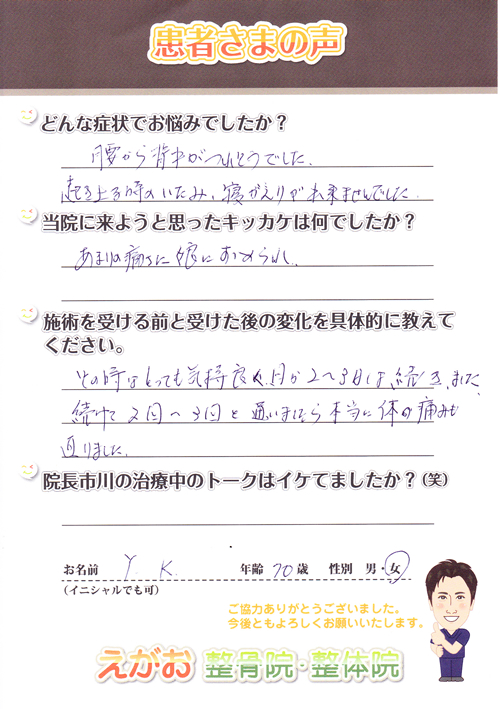 患者さまの声
どんな症状でお悩みでしたか？
腰から背中がつれそうでした.
起き上る時のいたみ、寝がえりが出来ませんでした.
当院に来ようと思ったキッカケは何でしたか？
あまりの痛さに娘にすすめられ.
施術を受ける前と受けた後の変化を具体的に教えて
ください。
その時はとっても気持良く、2〜3日は続き、ました
続けて2回〜3回と通いましたら本当に体の痛みも
直りました.
院長市川の治療中のトークはイケてましたか？(笑)
お名前 Y. K. 年齢 70歳 性別 男・女
(イニシャルでも可)
ご協力ありがとうございました。
今後ともよろしくお願いいたします。
えがお 整骨院・整体院